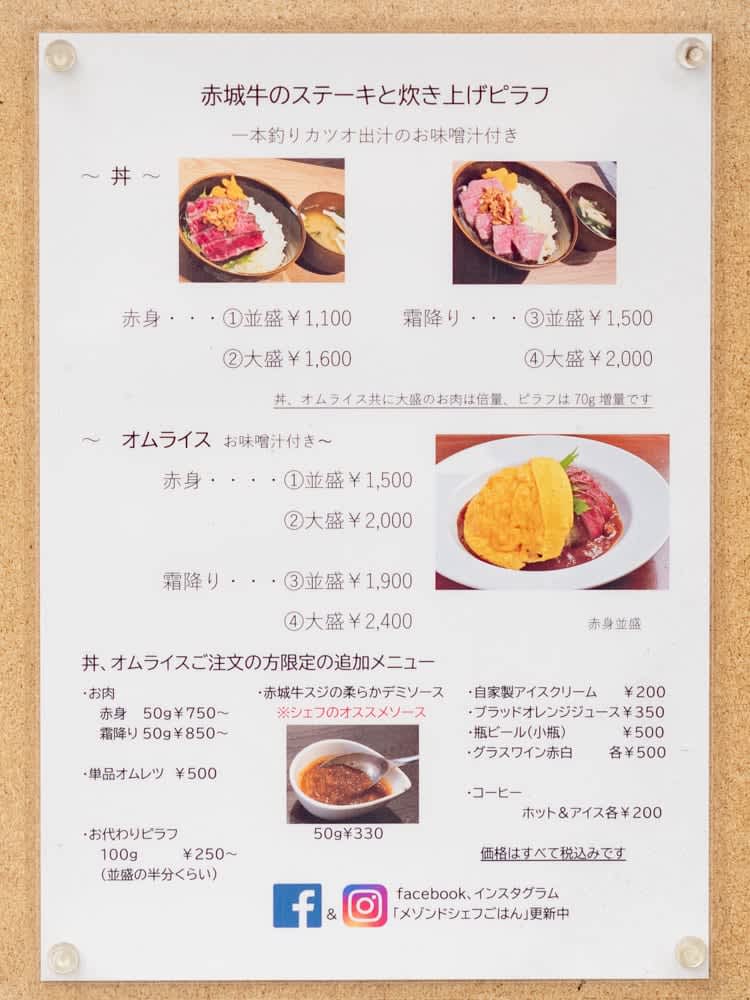 赤城牛のステーキと炊き上げピラフ
一本釣りカツオ出汁のお味噌汁付き
～ 丼 ～
赤身・・・①並盛￥1,100
②大盛￥1,600
霜降り・・・③並盛￥1,500
④大盛￥2,000
丼、オムライス共に大盛のお肉は倍量、ピラフは 70g 増量です
～ オムライス お味噌汁付き～
赤身・・・・①並盛￥1,500
②大盛￥2,000
霜降り・・・③並盛￥1,900
④大盛￥2,400
赤身並盛
丼、オムライスご注文の方限定の追加メニュー
・お肉
赤身 50g¥750～
霜降り 50g¥850～
・単品オムレツ ¥500
・お代わりピラフ
100g ¥250～
（並盛の半分くらい）
・赤城牛スジの柔らかデミソース
※シェフのオススメソース
50g¥330
・自家製アイスクリーム ¥200
・ブラッドオレンジジュース¥350
・瓶ビール（小瓶） ¥500
・グラスワイン赤白 各¥500
・コーヒー
ホット＆アイス各¥200
価格はすべて税込みです
& facebook、インスタグラム
「メゾンドシェフごはん」更新中